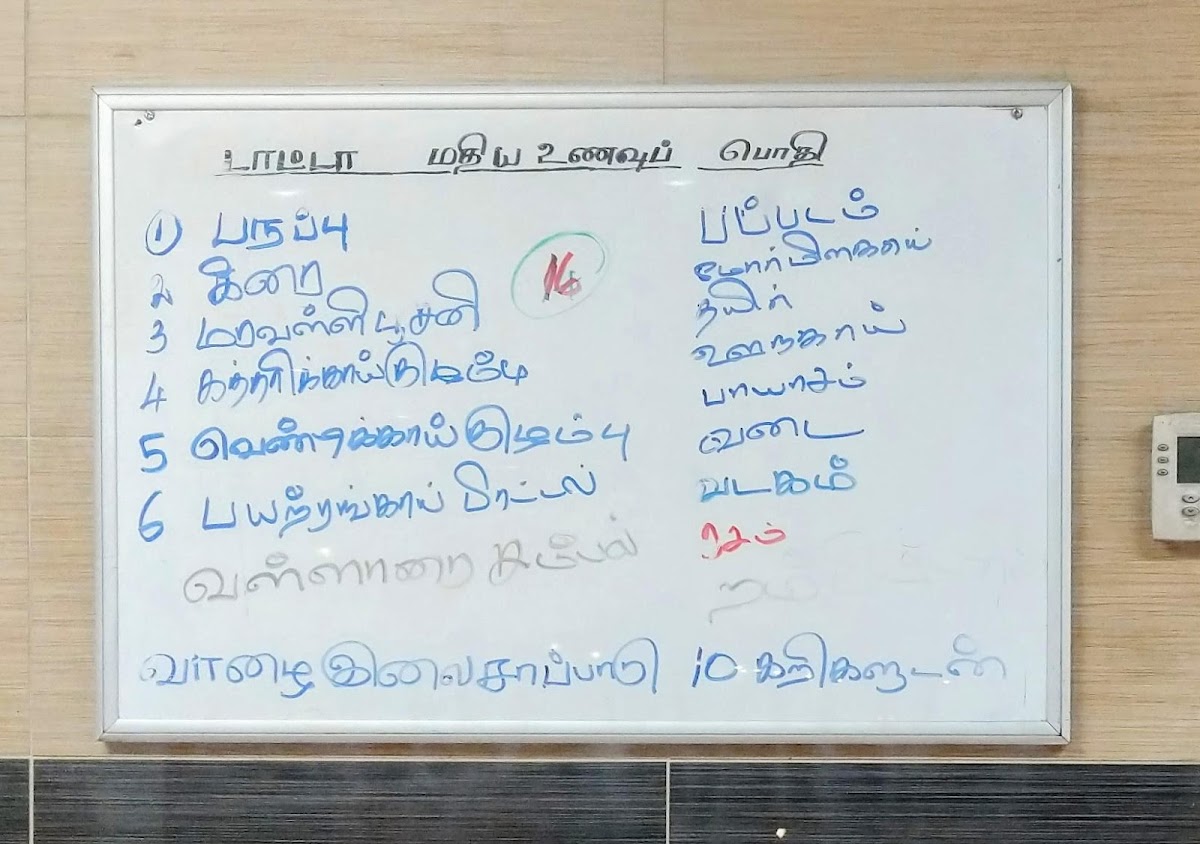 டாட்டா மதிய உணவுப் பொதி
1 பருப்பு
2 கீரை
3 மரவள்ளி பூசனி
4 கத்தரிக்காய் குழம்பு
5 வெண்டிக்காய் குழம்பு
6 பயற்றங்காய் பிரட்டல்
வள்ளாரை சம்பல்
பப்படம்
மோர்மிளகாய்
தயிர்
ஊறுகாய்
பாயாசம்
வடை
வடகம்
ரசம்
வாழை இலை சாப்பாடு 10 கறிகளுடன்